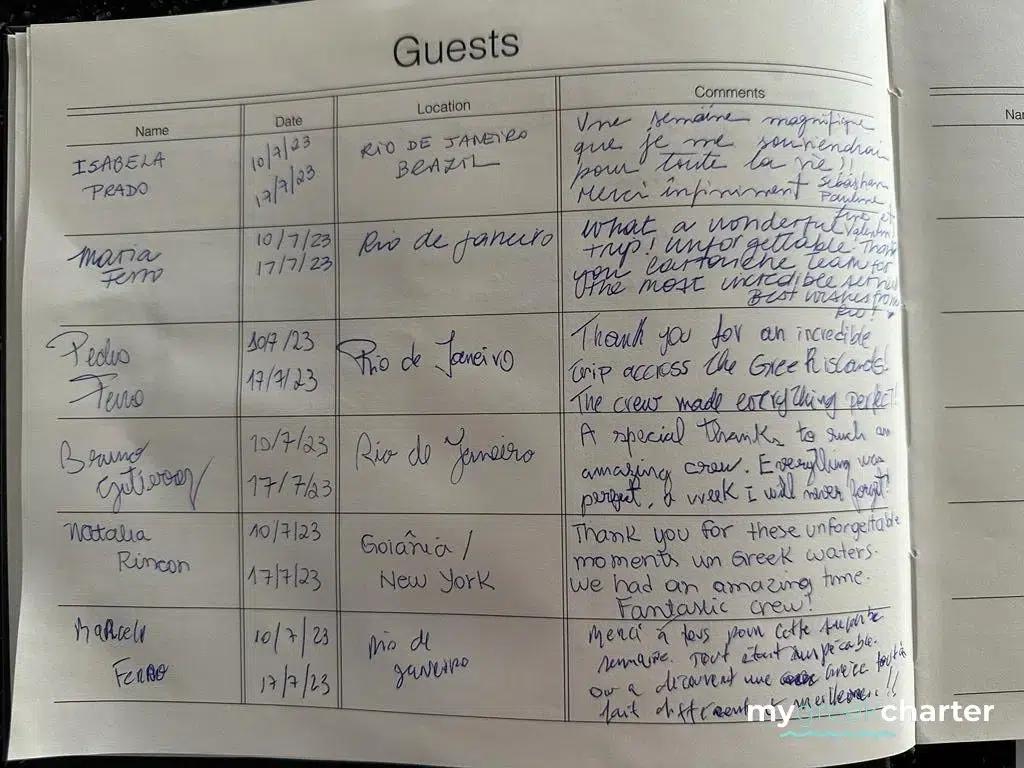 Guests
Name Date Location Comments
Nam
ISABELA
PRADO
10/7/23
17/7/23
RIO DE JANEIRO
BRAZIL
Une semaine magnifique
que je me souviendrai
pour toute la vie!!
Merci infiniment Sébastien
Pauline
et
Valentin
Maria
Ferro
10/7/23
17/7/23
Rio de Janeiro
What a wonderful
trip! Unforgettable. Thank
you cartouche team for
the most incredible service
Best wishes from
Rio!
Pedro
Ferro
10/7/23
17/7/23
Rio de Janeiro
Thank you for an incredible
trip accross the Greek islands!
The crew made everything perfect!
Bruno
Gutierrez
10/7/23
17/7/23
Rio de Janeiro
A special thanks to such an
amazing crew. Everything was
perfect, a week I will never forget!
Natalia
Rincon
10/7/23
17/7/23
Goiânia /
New York
Thank you for these unforgettable
moments un Greek waters.
We had an amazing time.
Fantastic crew!
Marcelo
Ferro
10/7/23
17/7/23
Rio de
Janeiro
Merci à tous pour cette superbe
semaine. Tout était impécable.
On a découvert une Grèce tout à
fait différent et meilleure!!
mygreekcharter